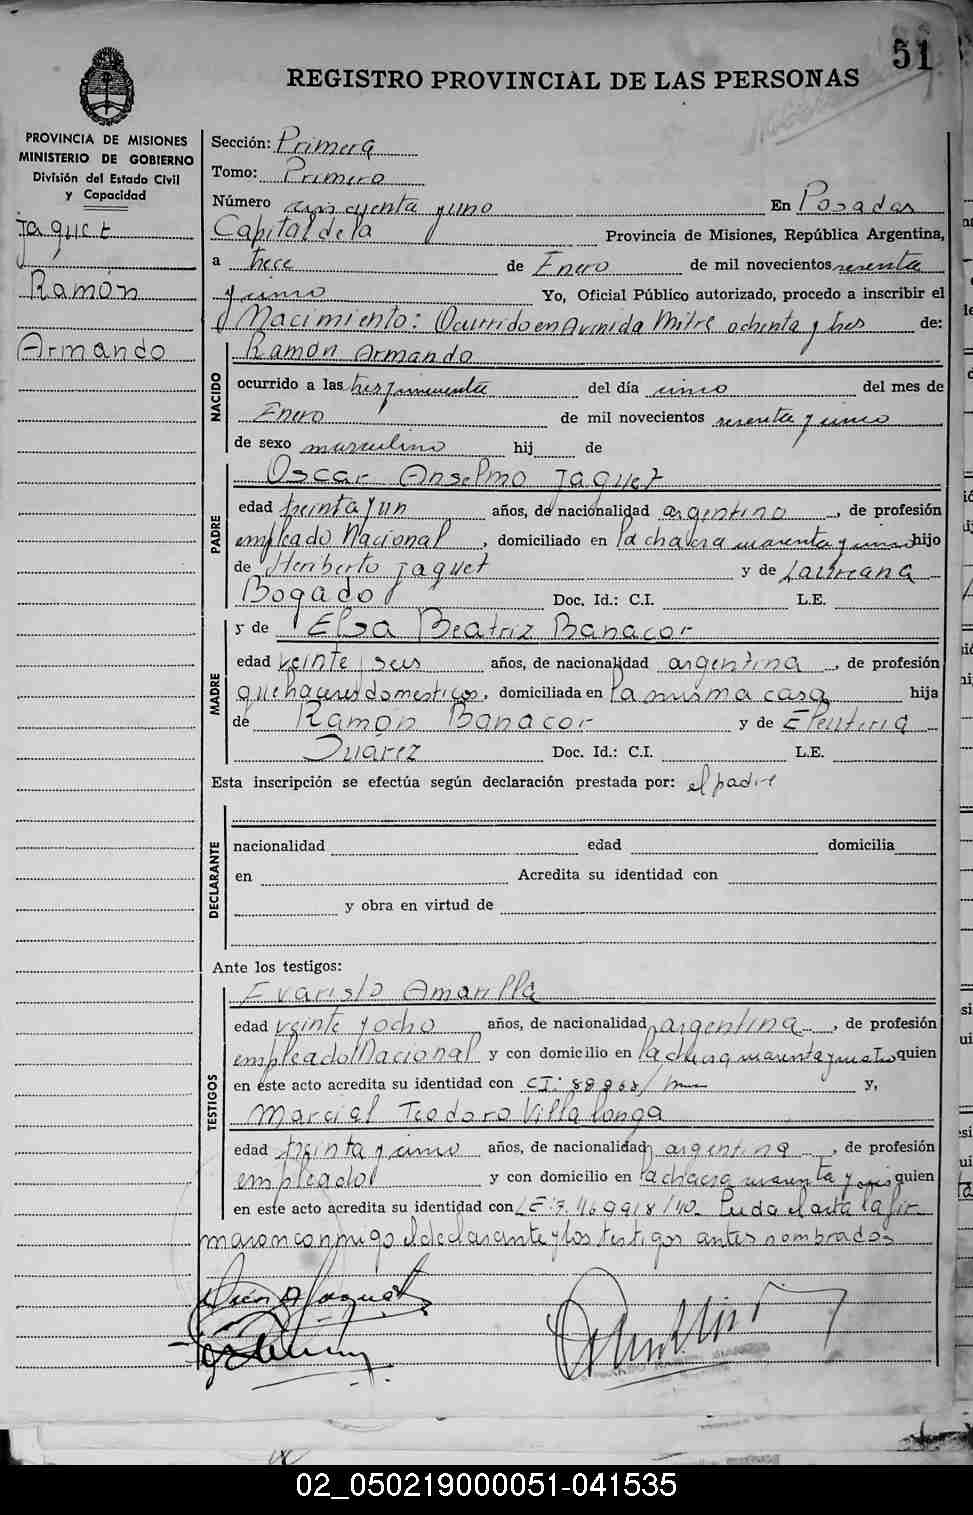 51
REGISTRO PROVINCIAL DE LAS PERSONAS
PROVINCIA DE MISIONES
MINISTERIO DE GOBIERNO
División del Estado Civil
y Capacidad
Jaquet
Ramón
Armando
Sección: Primera
Tomo: Primero
Número cincuenta y uno En Posadas
Capital de la Provincia de Misiones, República Argentina,
a trece de Enero de mil novecientos sesenta
y uno Yo, Oficial Público autorizado, procedo a inscribir el
Nacimiento: Ocurrido en Avenida Mitre ochenta y tres de:
NACIDO
Ramón Armando
ocurrido a las tres y cincuenta del día uno del mes de
Enero de mil novecientos sesenta y uno
de sexo masculino hij de
PADRE
Oscar Anselmo Jaquet
edad treinta y un años, de nacionalidad argentino, de profesión
empleado Nacional, domiciliado en la chacra cuarenta y uno hijo
de Heriberto Jaquet y de Laureana
Bogado Doc. Id.: C.I. L.E.
MADRE
y de Elsa Beatriz Banacor
edad veinte seis años, de nacionalidad argentina, de profesión
quehaceres domesticos, domiciliada en la misma casa hija
de Ramón Banacor y de Eleuteria
Suarez Doc. Id.: C.I. L.E.
Esta inscripción se efectúa según declaración prestada por: el padre
DECLARANTE
nacionalidad edad domicilia
en Acredita su identidad con
y obra en virtud de
Ante los testigos:
TESTIGOS
Evaristo Amarilla
edad veinte y ocho años, de nacionalidad argentina, de profesión
empleado Nacional y con domicilio en la chacra cuarenta y quien
en este acto acredita su identidad con CI: y,
Marcial Teodoro Villalonga
edad treinta y cinco años, de nacionalidad argentina, de profesión
empleado y con domicilio en la chacra cuarenta y quien
en este acto acredita su identidad con LE: Leida el acta la fir
maron conmigo el declarante y los testigos antes nombrados
02_050219000051-041535